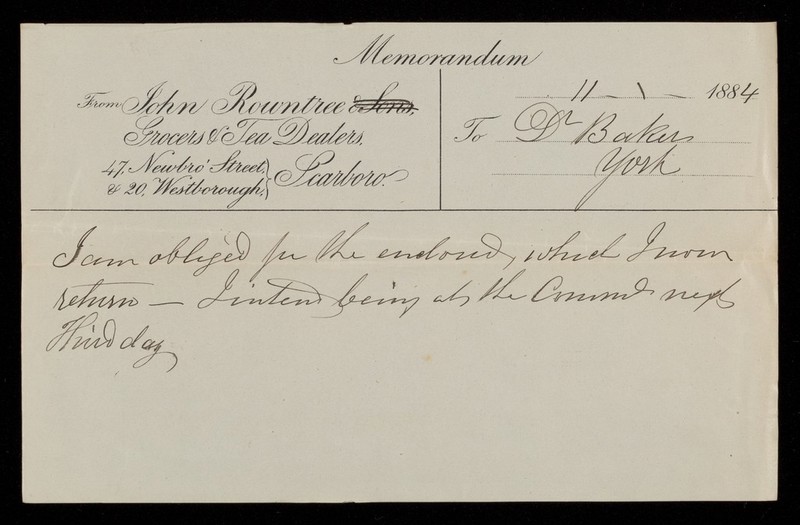 Memorandum
From John Rowntree & Sons,
Grocers & Tea Dealers,
47, Newbro' Street,
& 20, Westborough,
Scarboro.
11 - 1 - 1884
To Dr Baker
York
I am obliged for the enclosed, which I now
return — I intend being at the Comm next
Third day